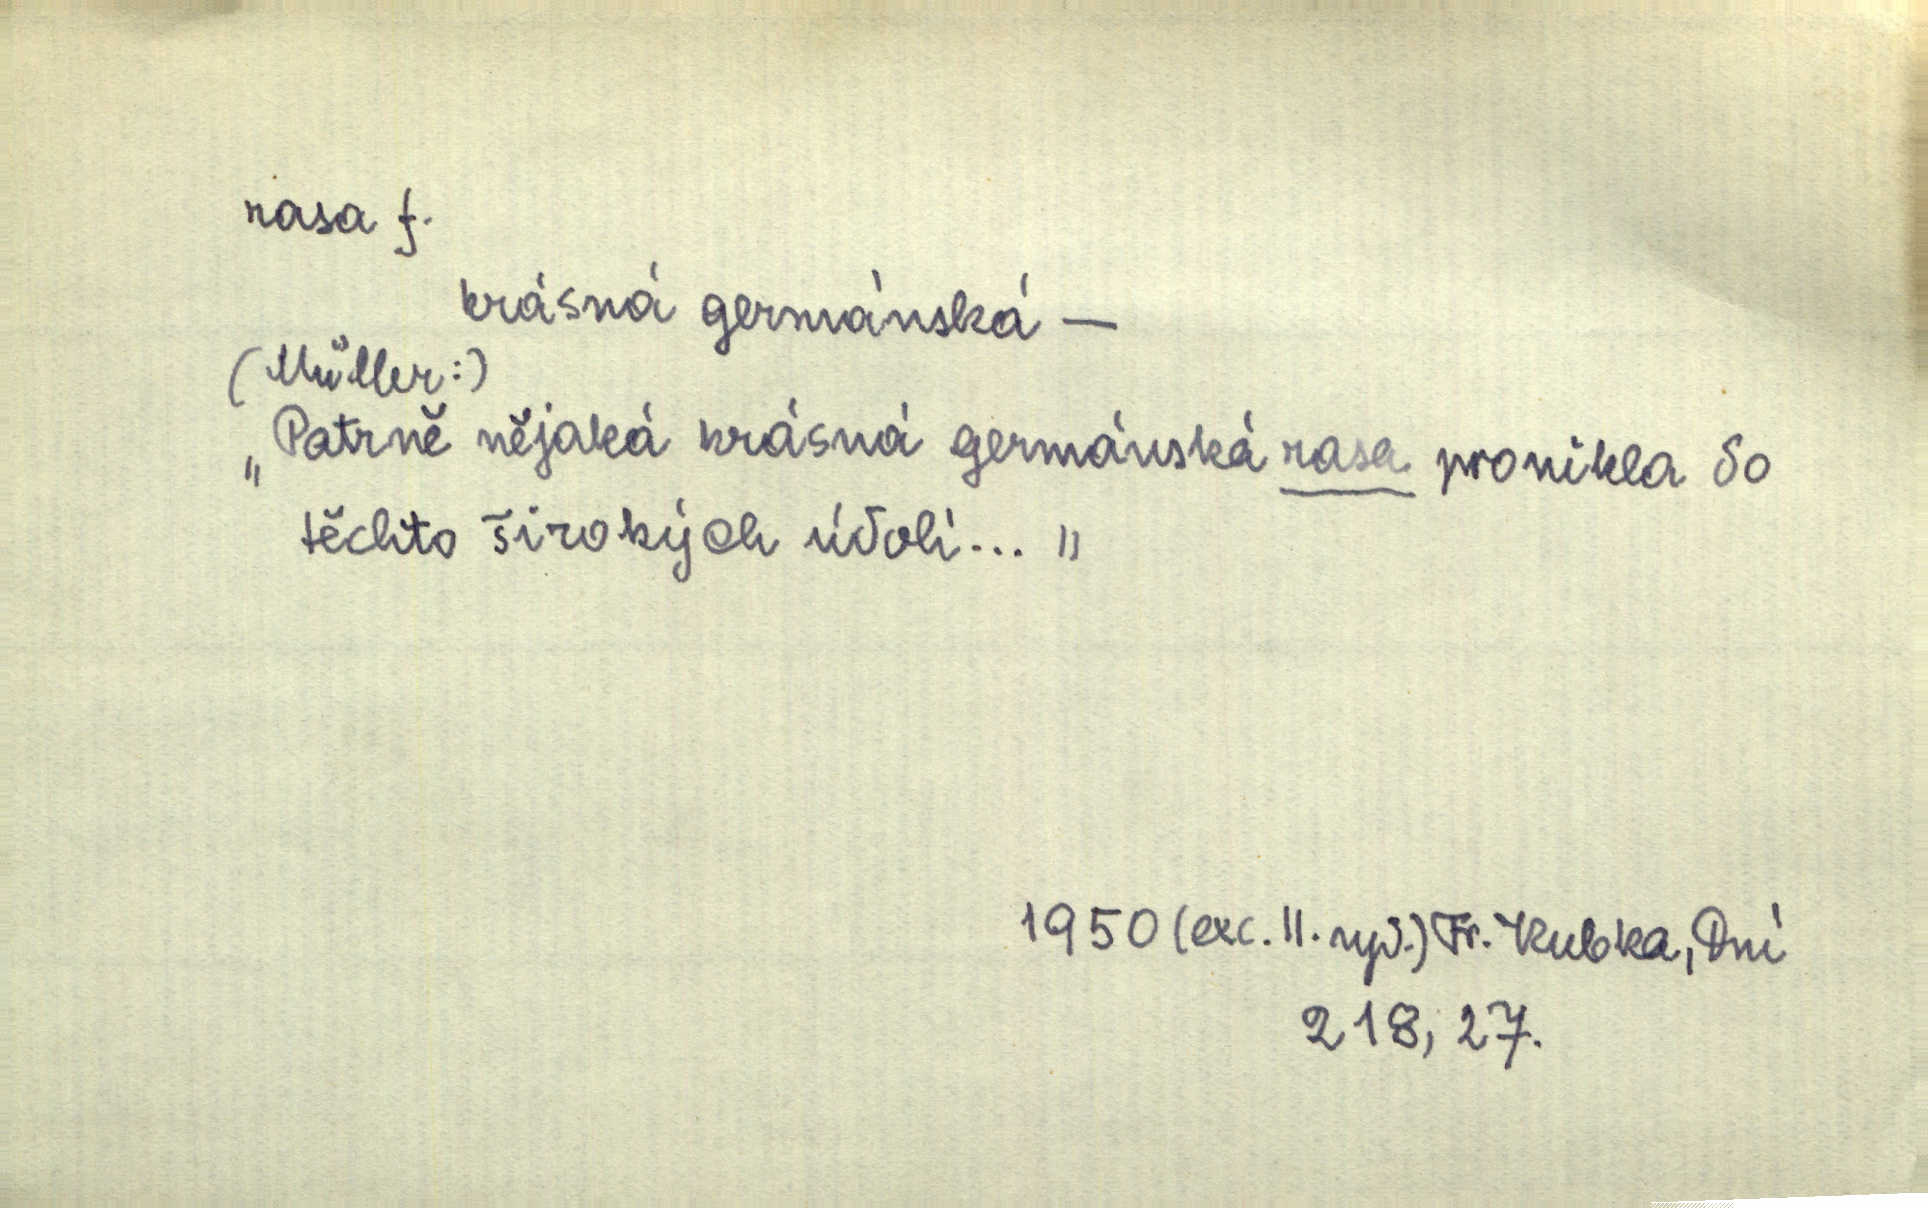 rasa f.
krásná germánská —
(Müller:)
„Patrně nějaká krásná germánská rasa pronikla do
těchto širokých údolí... "
1950 (exc. II. vyd.) Fr. Kubka, Dni
218, 27.